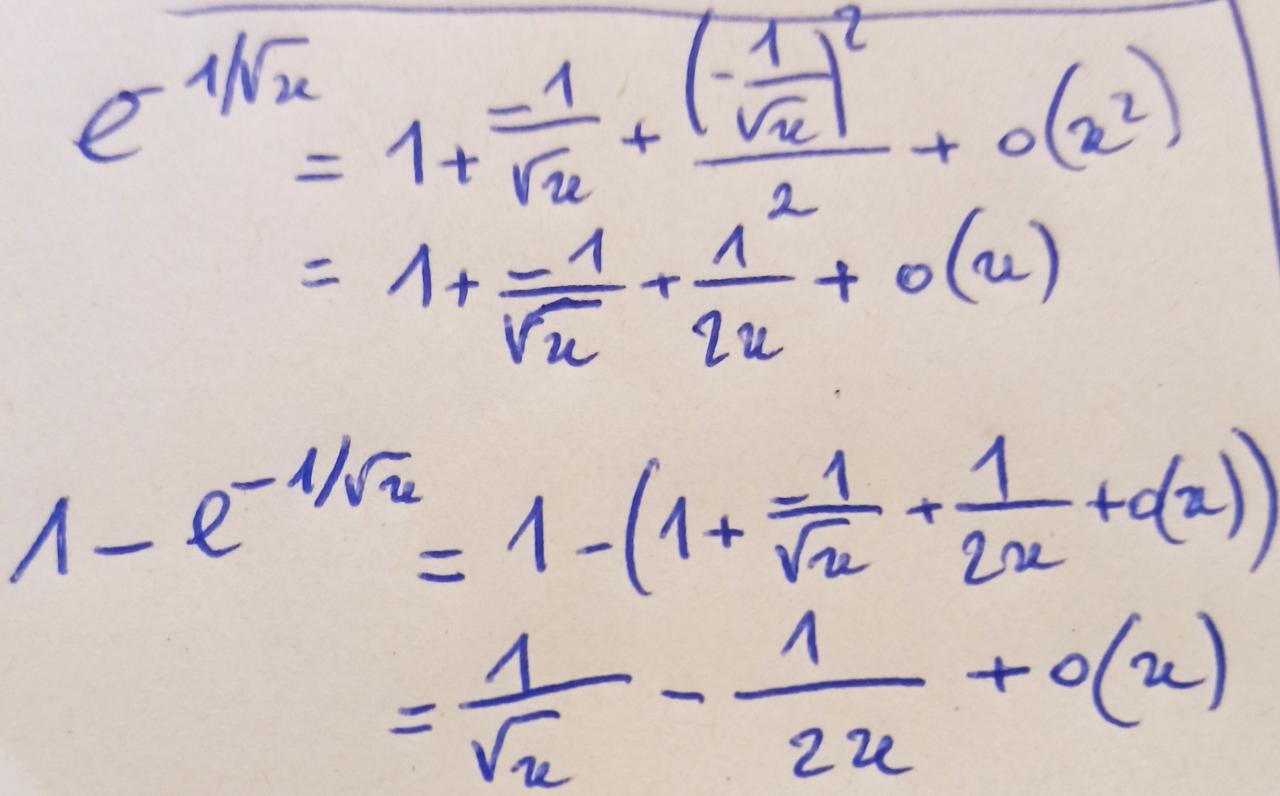 e^{-1/√x} = 1 + \frac{-1}{√x} + \frac{(-\frac{1}{√x})^2}{2} + o(x^2)
= 1 + \frac{-1}{√x} + \frac{1}{2x} + o(x)
1 - e^{-1/√x} = 1 - (1 + \frac{-1}{√x} + \frac{1}{2x} + o(x))
= \frac{1}{√x} - \frac{1}{2x} + o(x)